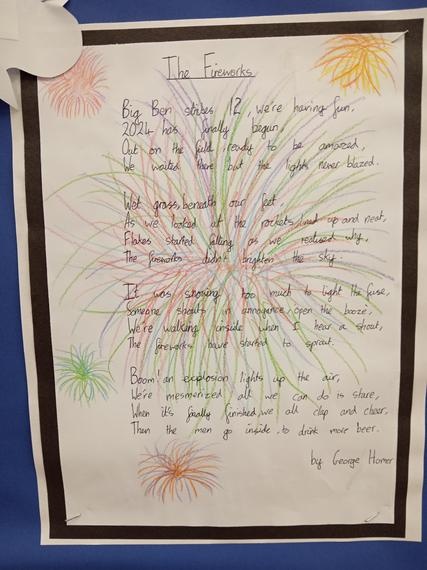 The Fireworks
Big Ben strikes 12, we're having fun,
2024 has finally begun,
Out on the field ready to be amazed,
We waited there but the lights never blazed.
Wet grass, beneath our feet,
As we looked at the rockets, lined up and neat,
Flakes started falling as we realised why,
The fireworks didn't brighten the sky.
It was snowing too much to light the fuse,
Someone shouts in annoyance, open the booze,
We're walking inside when I hear a shout,
The fireworks have started to sprout.
Boom! an explosion lights up the air,
We're mesmerized all we can do is stare,
When it's finally finished, we all clap and cheer,
Then the men go inside to drink more beer.
by George Homer